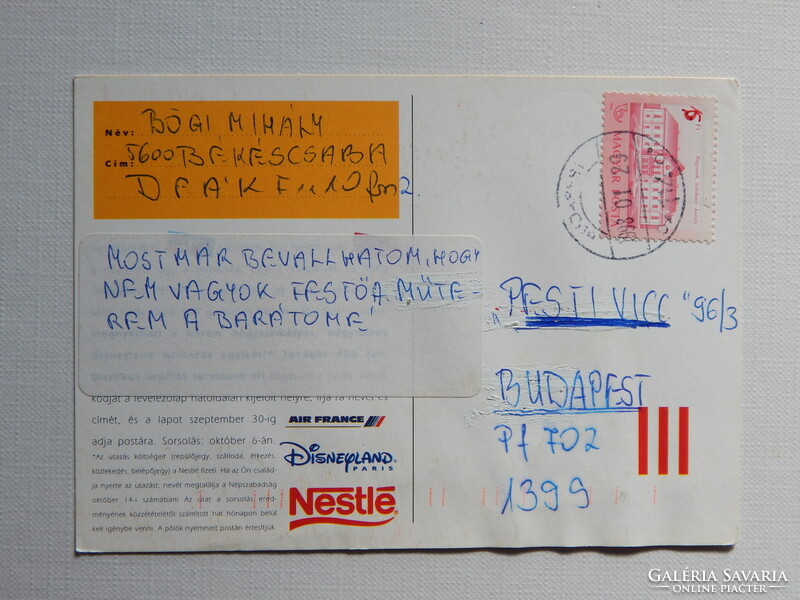 Név: BÖGI MIHÁLY
Cím: 5600 BÉKÉSCSABA
DEÁK F. u. 10 fsz 2.
MOST MÁR BEVALLHATOM, HOGY
NEM VAGYOK FESTŐ A MŰTE-
REM A BARÁTOMÉ
kódját a levelezőlap hátoldalán kijelölt helyre, írja rá nevét és
címét, és a lapot szeptember 30-ig
adja postára. Sorsolás: október 6-án.
*Az utazás költségeit (repülőjegy, szálloda, étkezés,
közlekedés, belépőjegy) a Nestlé fizeti. Ha az Ön család-
ja nyerte az utazást, nevét megtalálja a Népszabadság
október 14-i számában! Az utat a sorsolás ered-
ményének közzétételétől számított hat hónapon belül
kell igénybe venni. A pólók nyerteseit postán értesítjük.
AIR FRANCE
DISNEYLAND
PARIS
Nestlé
MAGYAR POSTA
"PESTI VICC" 96/3
BUDAPEST
Pf 702
1399
GALÉRIA SAVARIA
ONLINE PIACTÉR